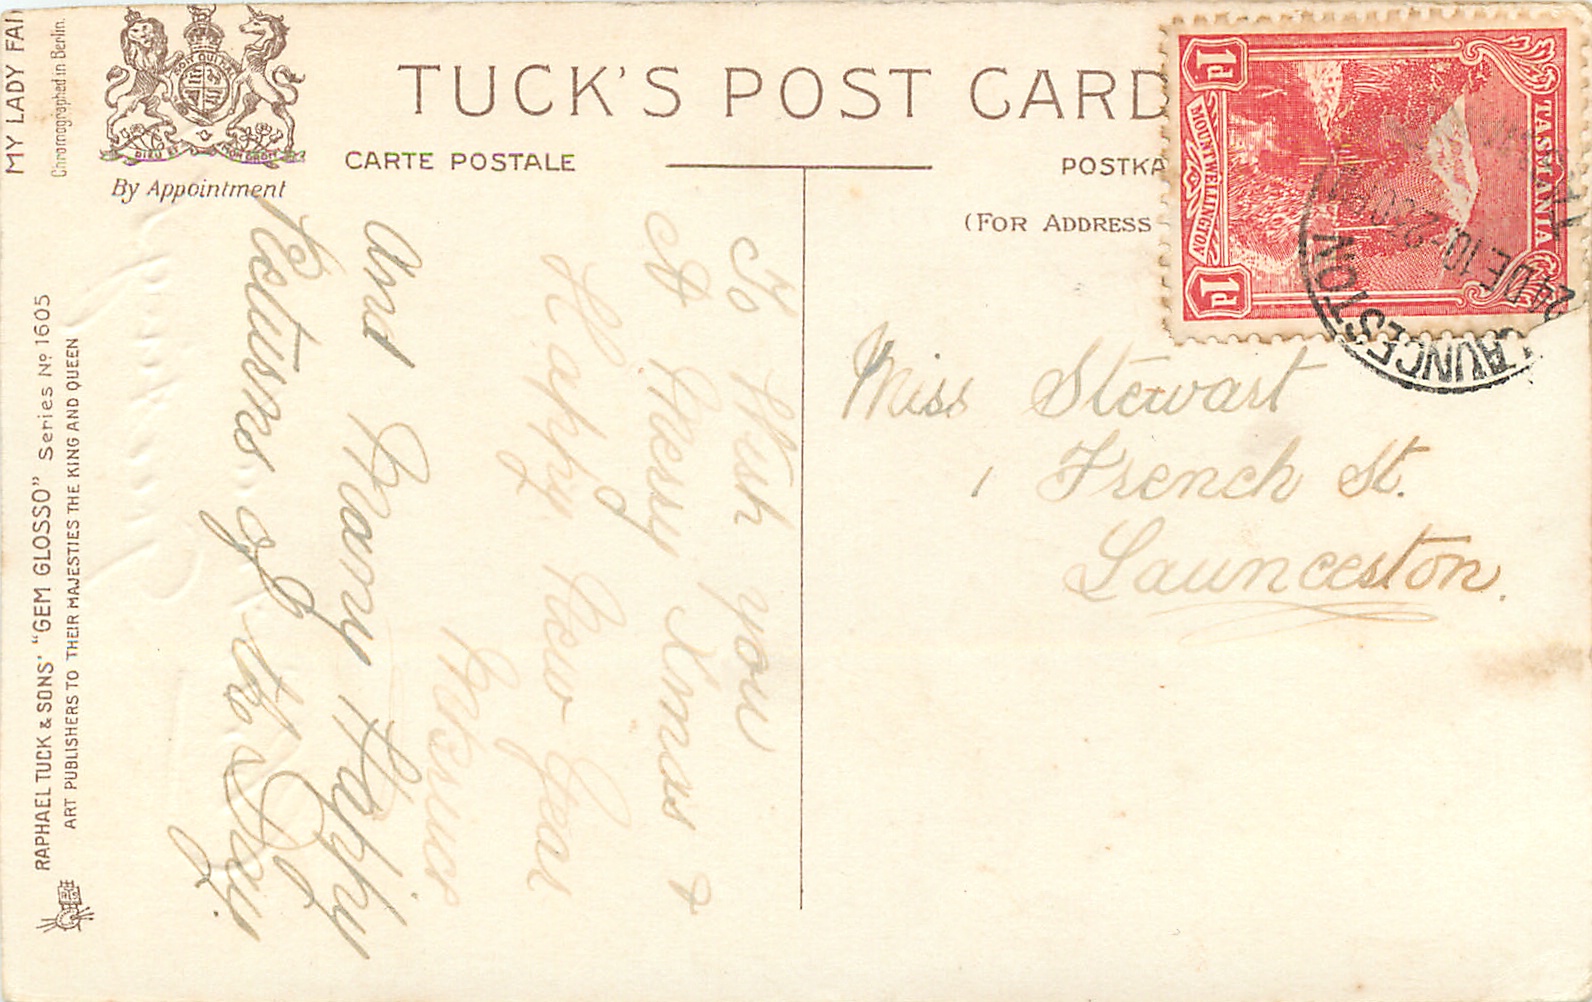 MY LADY FAI
Chromographed in Berlin.
RAPHAEL TUCK & SONS' "GEM GLOSSO" Series Nº 1605
ART PUBLISHERS TO THEIR MAJESTIES THE KING AND QUEEN
DIEU ET MON DROIT
By Appointment
TUCK'S POST CARD
CARTE POSTALE
POSTKA
(FOR ADDRESS
To Wish you
A Merry Xmas &
Happy New Year
And Many Happy
Returns of the Day.
1d
1d
TASMANIA
MOUNT WELLINGTON
LAUNCESTON
24 DE 10
Miss Stewart
French St.
Launceston.